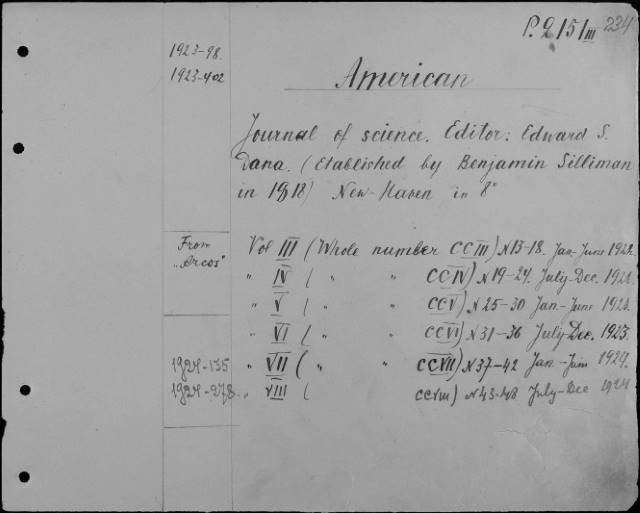 P. 2151 III 234
1923-98.
1923-402
American
Journal of science. Editor: Edward S.
Dana. (Etablished by Benjamin Silliman
in 1818) New-Haven in 8°
From "Arcos"
Vol III (Whole number CCIII) N 13-18. Jan-June 1922.
" IV ( " " CCIV) N 19-24. July-Dec. 1922.
" V ( " " CCV) N 25-30 Jan.-June 1923.
" VI ( " " CCVI) N 31-36 July-Dec. 1923.
1924-135 " VII ( " " CCVII) N 37-42 Jan.-Juin 1924.
1924-278. " VIII ( CCVIII) N 43-48 July-Dec 1924